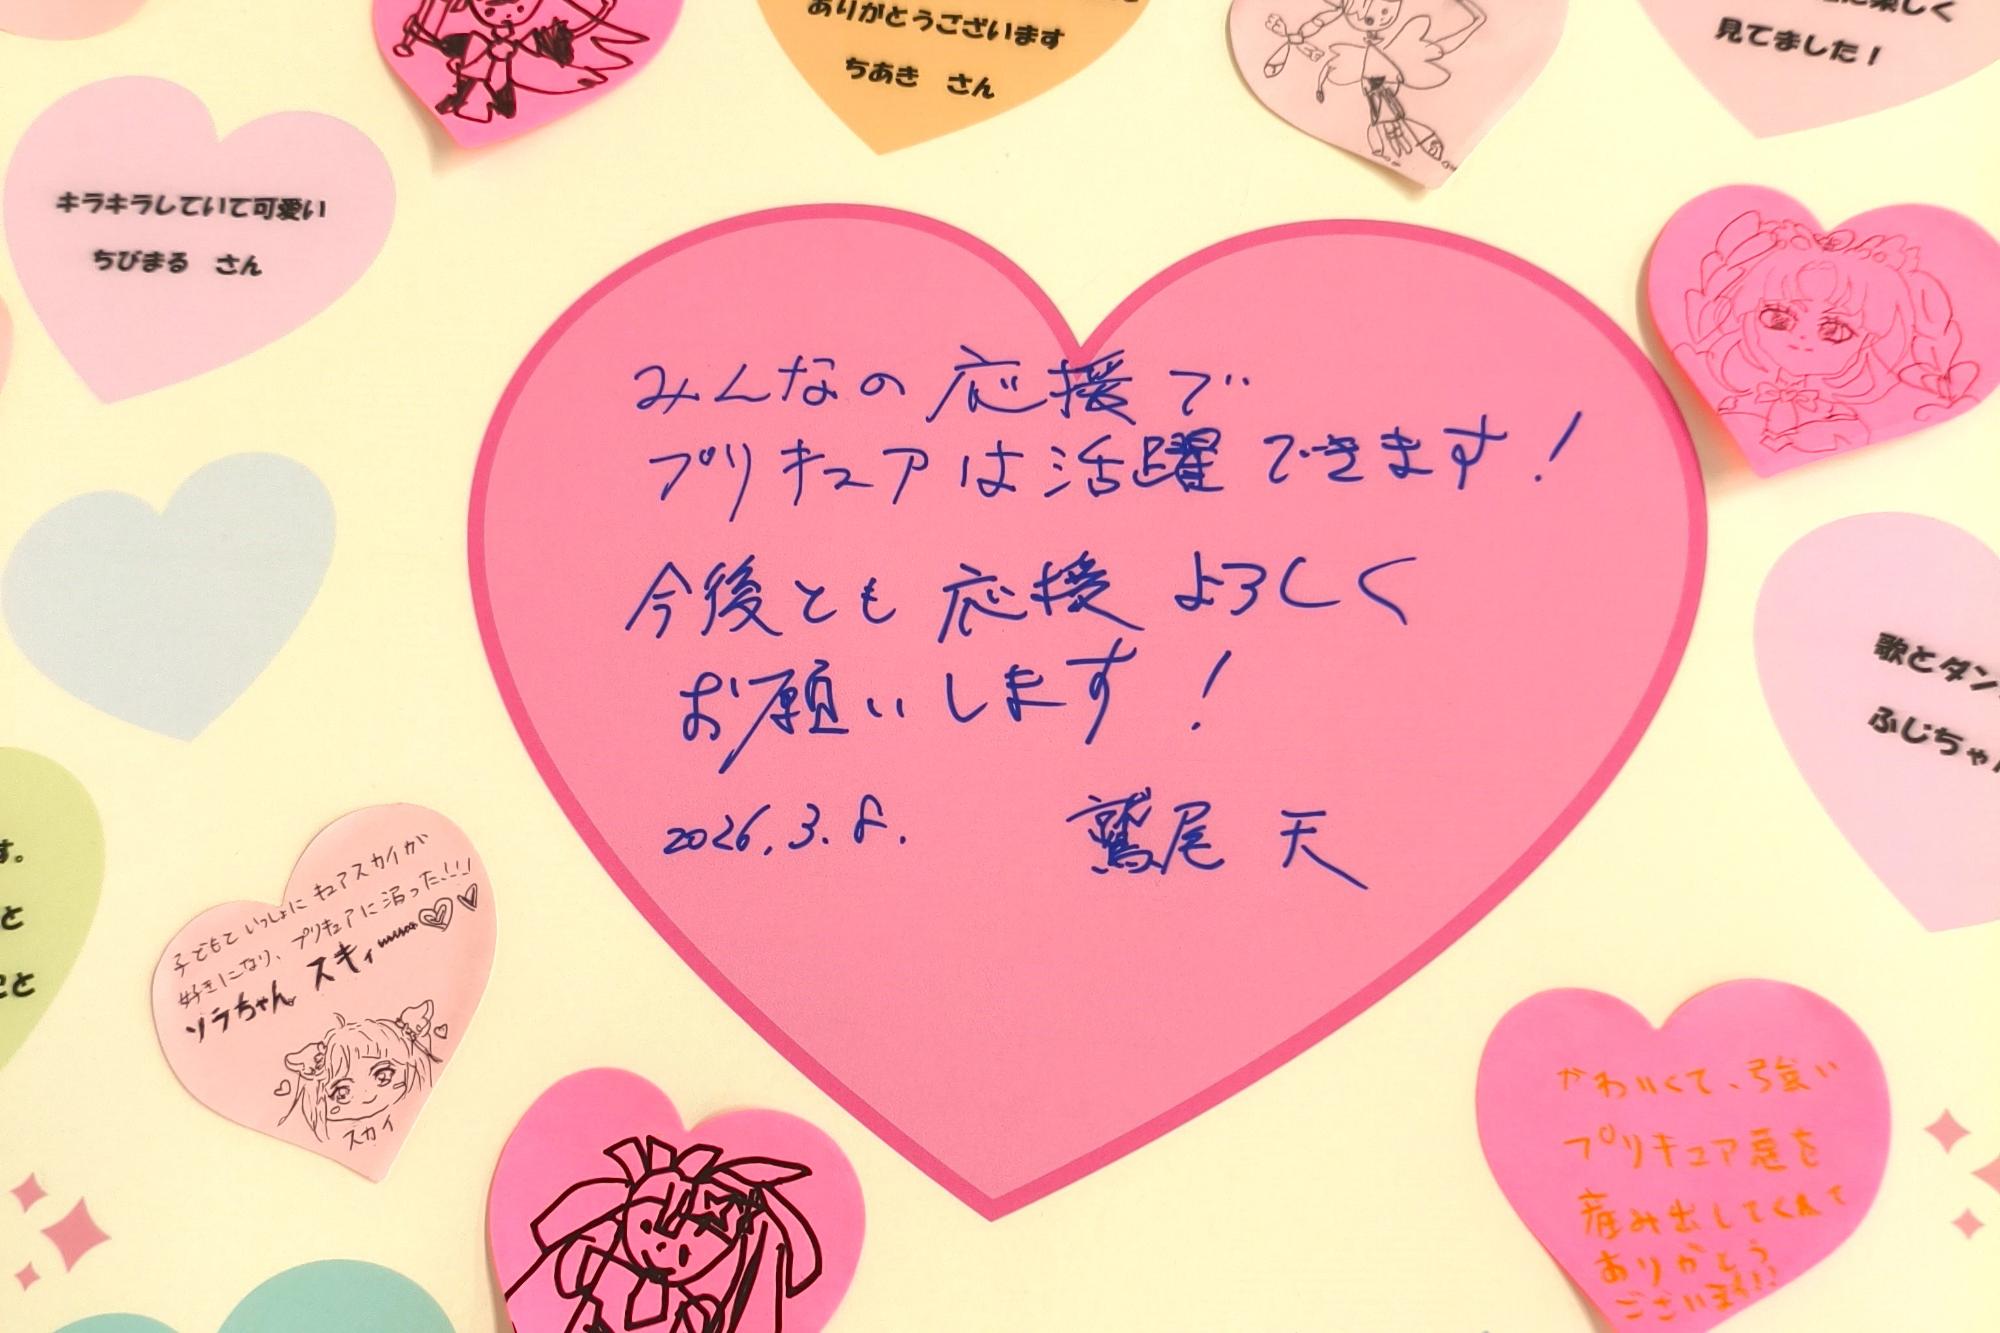 ありがとうございます
ちあき　さん
見てました！
キラキラしていて可愛い
ちびまる　さん
みんなの応援で
プリキュアは活躍できます！
今後とも応援よろしく
お願いします！
2026.3.8.
鷲尾 天
歌とダン
ふじちゃん
す。
と
こと
子どもといっしょにキュアスカイが
好きになり、プリキュアに沼った!!!
ソラちゃん スキィー
スカイ
かわいくて、強い
プリキュア達を
産み出してくれて
ありがとう
ございます!!